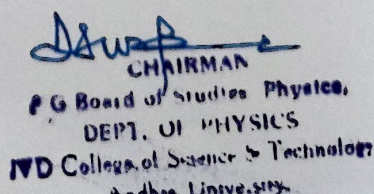 CHAIRMAN
P G Board of Studies Physics,
DEPT. OF PHYSICS
College of Science & Technology
Andhra University